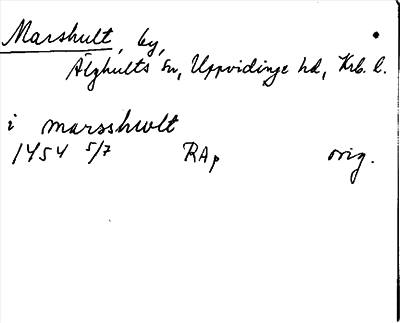 Marshult, by,
Älghults sn, Uppvidinge hd, Krb. l.
i marsshwlt
1454 5/7 RAp orig.